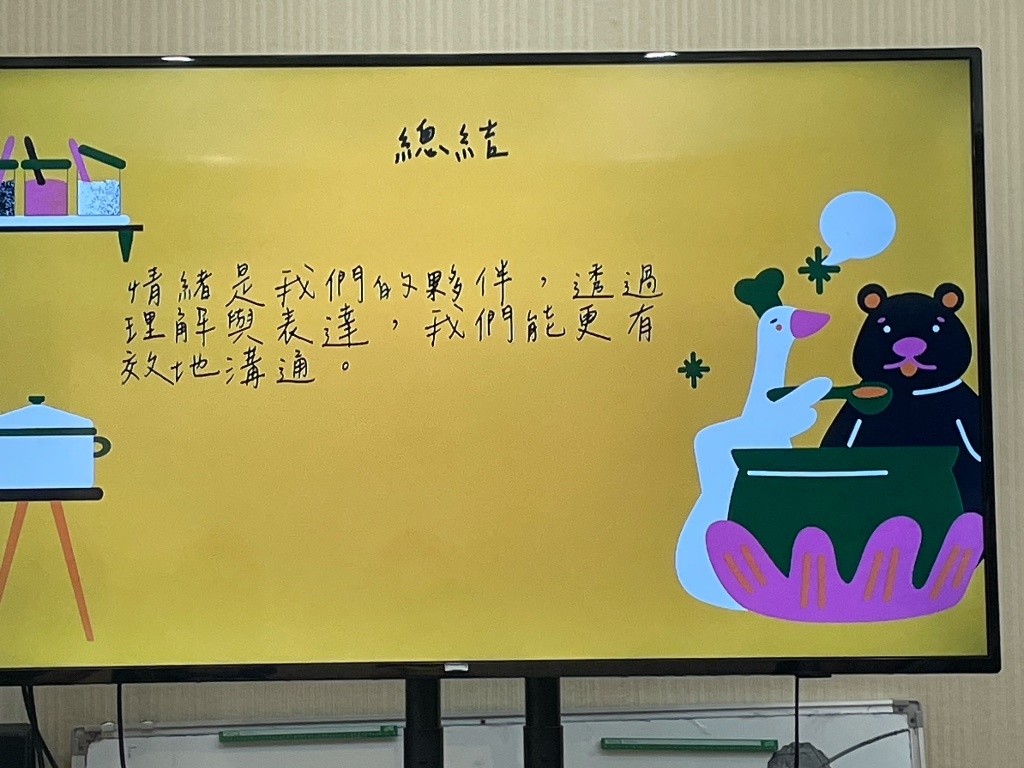 總結
情緒是我們的夥伴，透過
理解與表達，我們能更有
效地溝通。